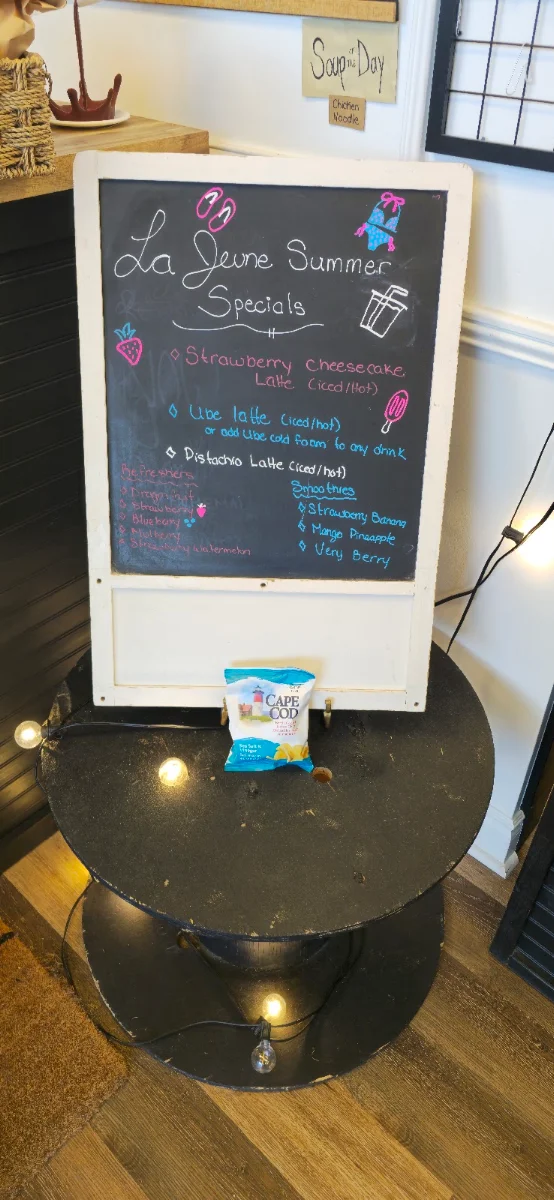 Soup of the Day
Chicken
Noodle
La Jeune Summer
Specials
Strawberry Cheesecake
Latte (iced/Hot)
Ube latte (iced/hot)
or add Ube cold foam to any drink
Pistachio Latte (iced/hot)
Refreshers
Dragonfruit
Strawberry
Blueberry
Mulberry
Strawberry Watermelon
Smoothies
Strawberry Banana
Mango Pineapple
Very Berry
CAPE
COD
Sea Salt &
Vinegar